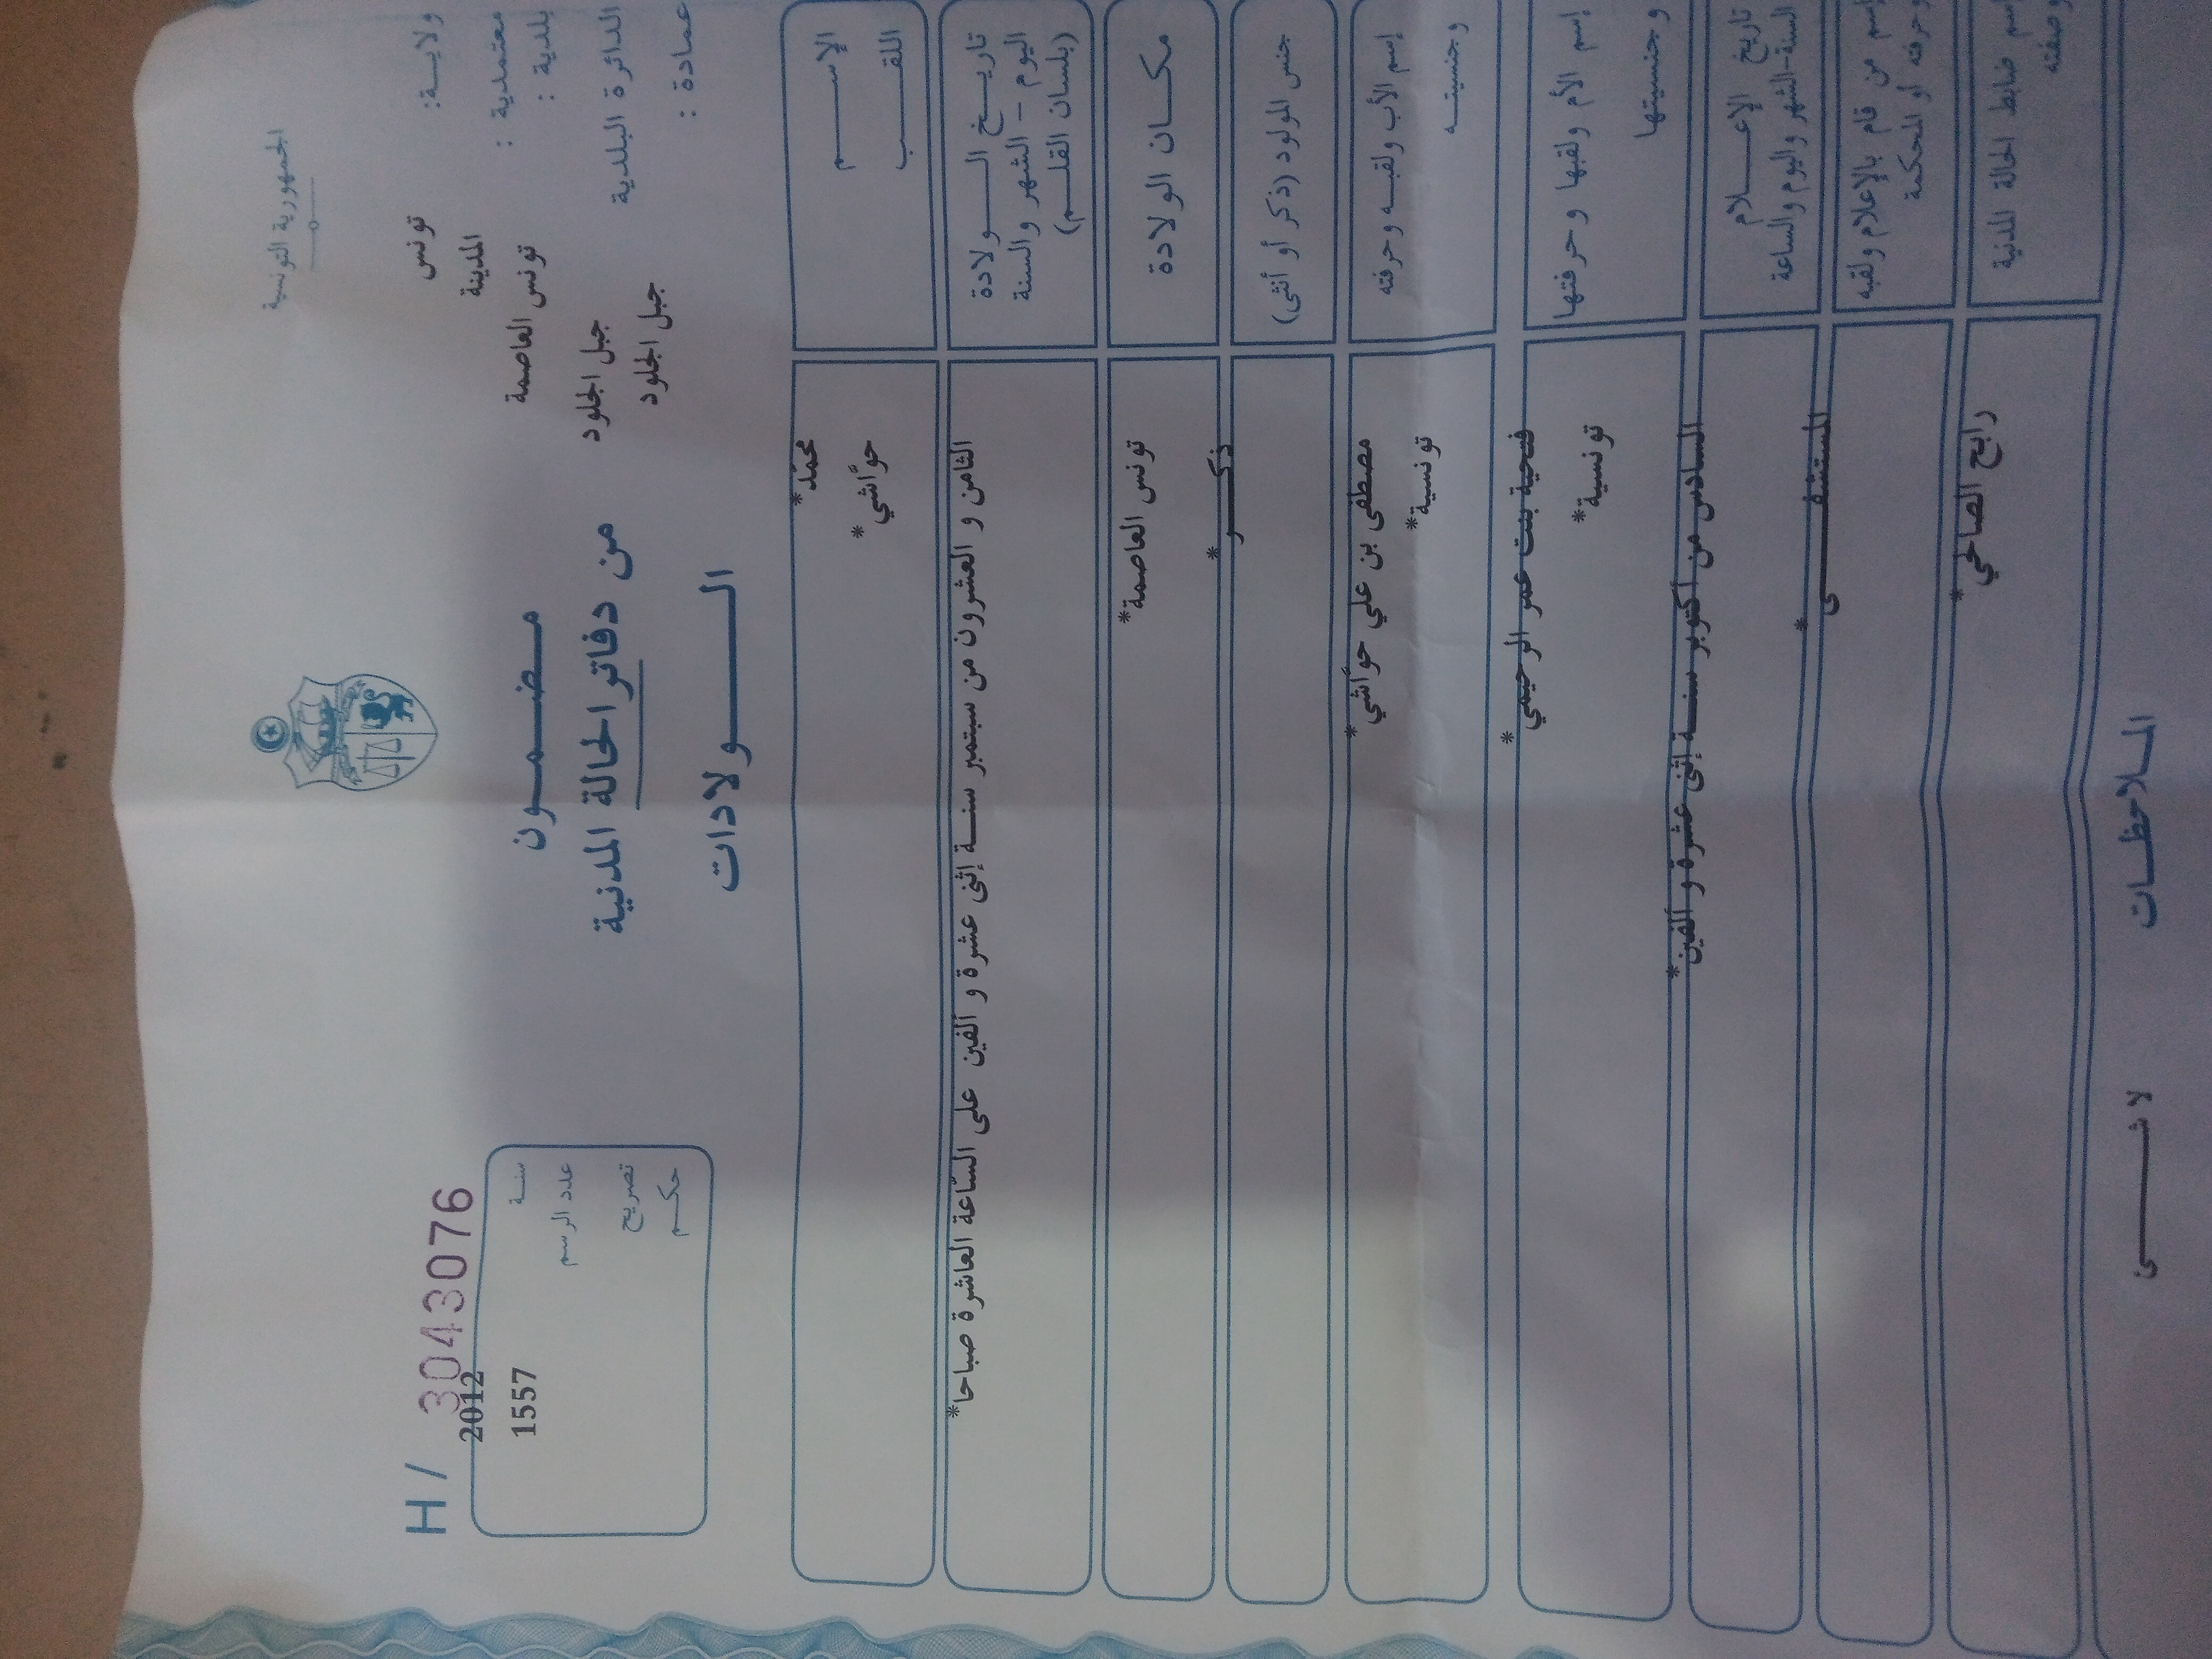 الجمهورية التونسية
ولايـــة: تونس
معتمدية : المدينة
بلدية : تونس العاصمة
الدائرة البلدية جبل الجلود
عمادة : جبل الجلود
مـضـمـــون
من دفاتر الحالة المدنية
الـــولادات
H / 3043076
سنــة 2012
عدد الرسم 1557
تصريح
حكــم
الإســـم محمّد*
اللقـــب حوّاشي*
تاريــخ الـــولادة
اليوم - الشهر والسنة
(بلسان القلــم)
الثامن و العشرون من سبتمبر سنــة إثنى عشرة و ألفين على السّاعة العاشرة صباحا*
مكــان الولادة تونس العاصمة*
جنس المولود (ذكر أو أنثى) ذكـــر*
إسم الأب ولقبــه وحرفته مصطفى بن علي حوّاشي*
وجنسيتــه تونسية*
إسم الأم ولقبها وحرفتها فتحية بنت عمر الرحيمي*
وجنسيتها تونسية*
تاريخ الإعـــلام
السنة-الشهر واليوم والساعة
السادس من أكتوبر سنــة إثنى عشرة و ألفين*
إسم من قام بالإعلام ولقبه
وحرفته أو المحكمة
المستشفـــى*
إسم ضابط الحالة المدنية
وصفته
رابح الصالحي*
المــلاحظــات
لا شـــئ